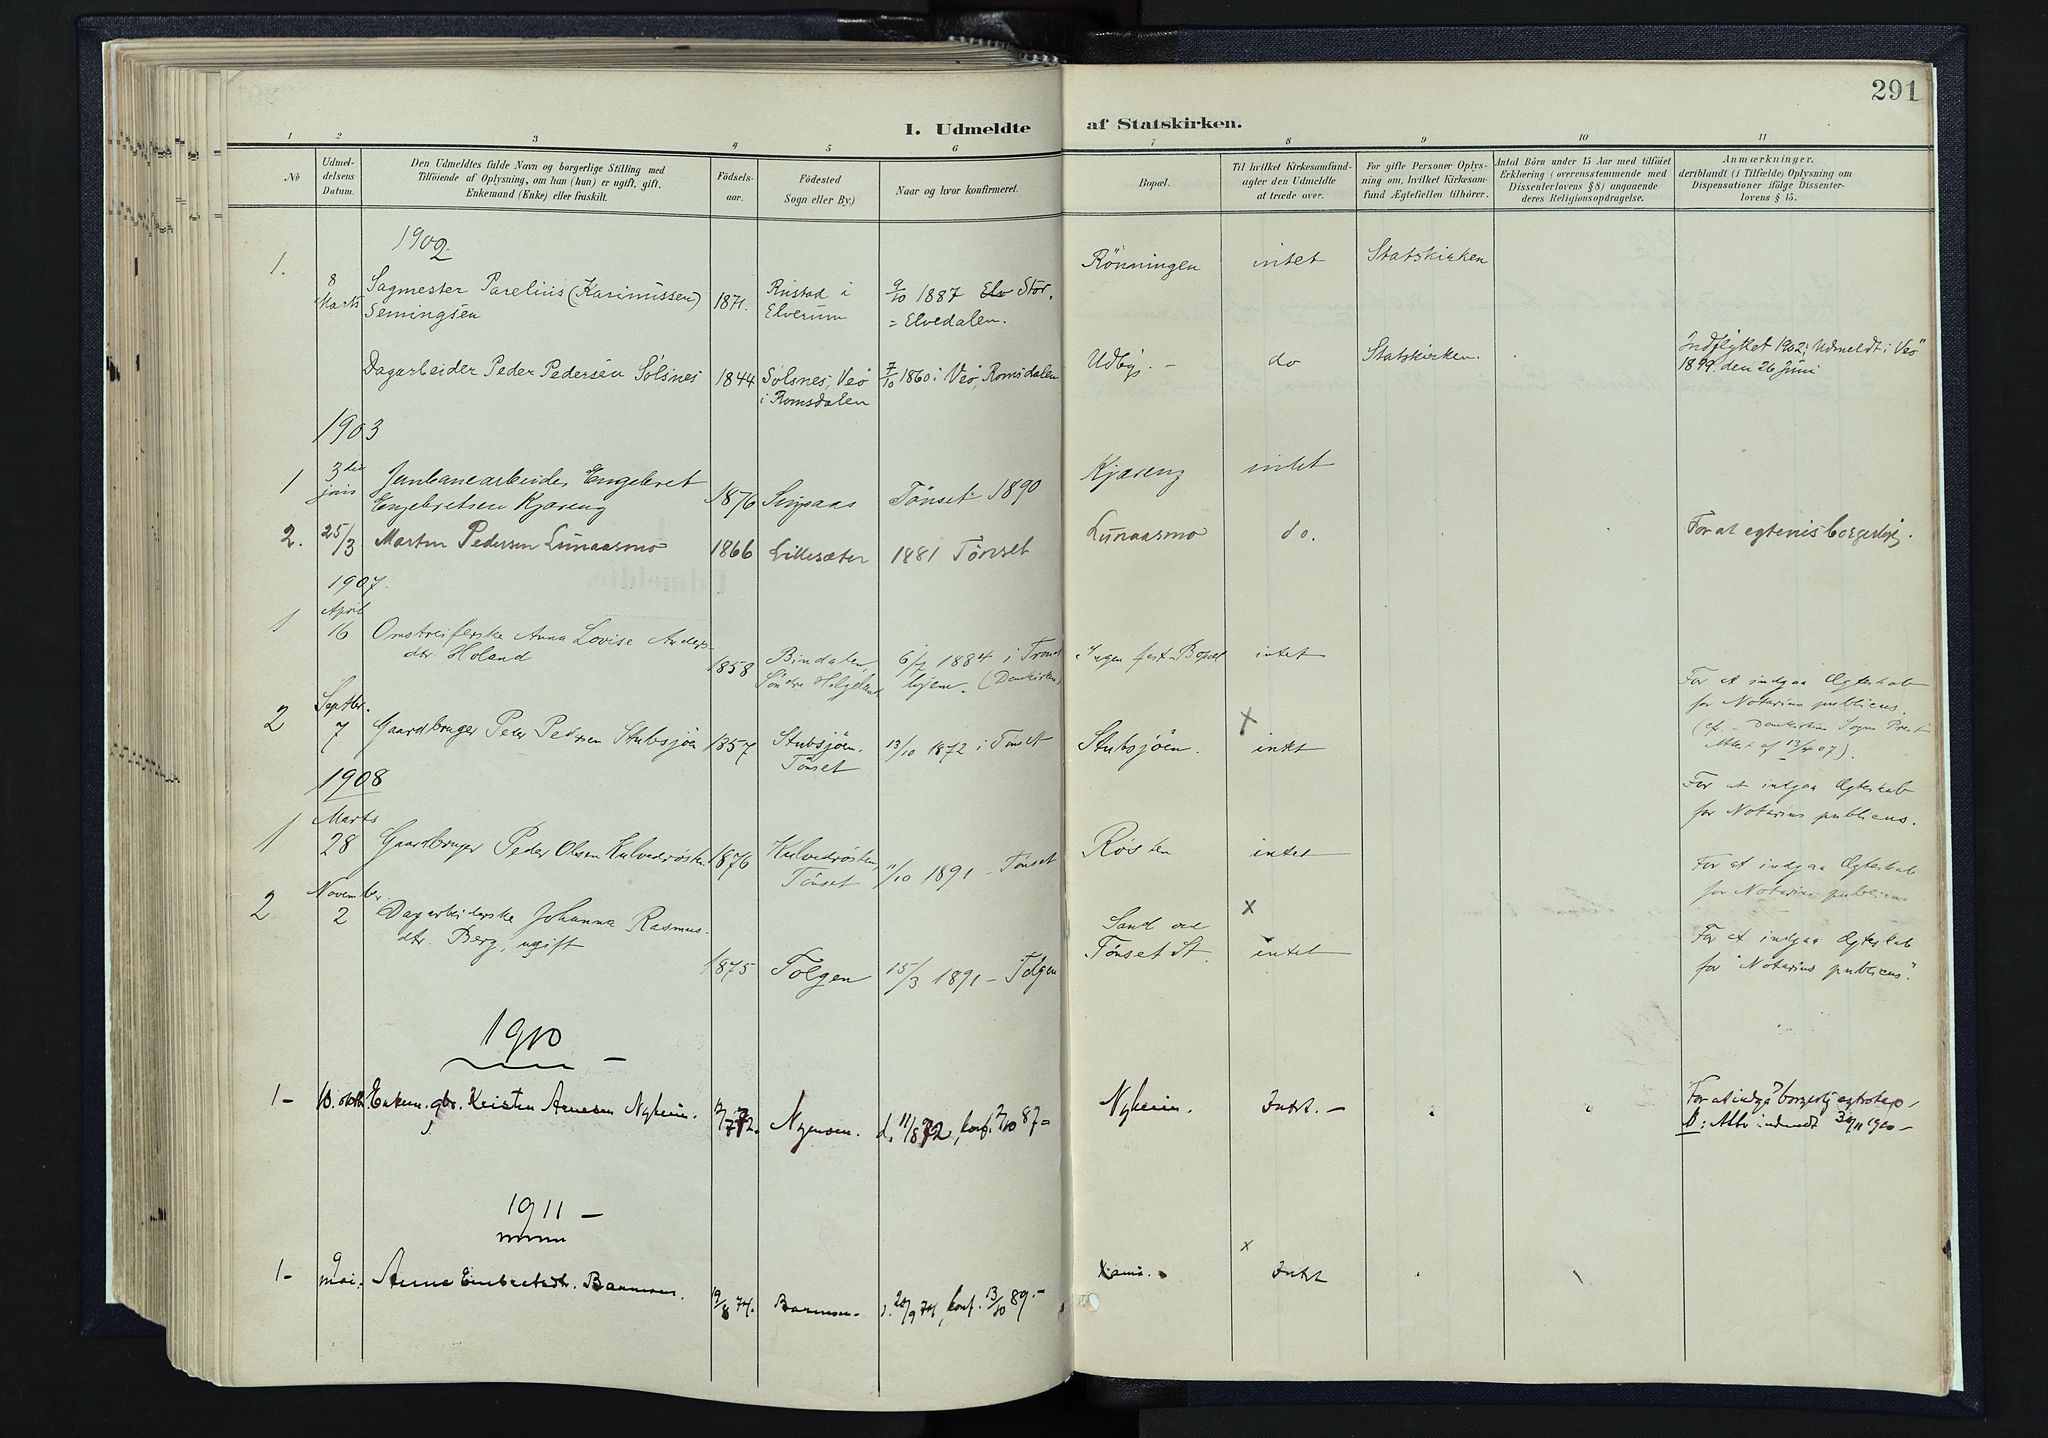 291
I. Udmeldte af Statskirken.
1 2 3 4 5 6 7 8 9 10 11
No
Udmeldelsens Datum.
Den Udmeldtes fulde Navn og borgerlige Stilling med
Tilföiende af Oplysning, om han (hun) er ugift, gift,
Enkemand (Enke) eller fraskilt.
Födselsaar.
Födested
Sogn eller By.)
Naar og hvor konfirmeret.
Bopæl.
Til hvilket Kirkesamfund-
agter den Udmeldte
at træde over.
For gifte Personer Oplys-
ning om, hvilket Kirkesam-
fund Ægtefællen tilhörer.
Antal Börn under 15 Aar med tilföiet
Erklæring (overensstemmende med
Dissenterlovens § 8) angaaende
deres Religionsopdragelse.
Anmærkninger,
deriblandt (i Tilfælde) Oplysning om
Dispensationer ifölge Dissenter-
lovens § 15.
1902
1. 8 Marts Sagmester Parelius (Karinussen) Semingsen 1871. Rustad i Elverum 9/10 1887 Elv Stor. = Elvedalen. Rönningen intet Statskirken
Dagarbeider Peder Pedersen Sølsnes 1844 Sølsnes, Veö i Romsdalen 7/10 1860 i Veö, Romsdalen Udbyg. - do Statskirken. Indflyttet 1902; Udmeldt i Veö 1899. den 26 Juni
1903
1 3die Jernbanearbeider Engebret Engebretsen Kjæreng 1876 Singsaas Tönset 1890 Kjæreng intet
2. 25/3 Martin Pedersen Lunaasmo 1866 Lillesæter 1881 Tönset Lunaasmo do. For at egtevies borgerligt.
1907.
1 April 16 Omstreiferske Anna Lovise Andersdtr. Holand 1858 Bindalen, Söndre Helgeland 6/7 1884 i Trondhjem. (Domkirken) Ingen fast Bopæl intet For at indgaa Ægteskab for Notarius publicus. (cf. - Domkirkens Sogne Prest Attest af 13/4 07).
2 Septbr. 7 Gaardbruger Peder Pedersen Stubsjöen 1857 Stubsjöen. Tönset 13/10 1872 i Tönset Stubsjöen. x intet For at indgaa Ægteskab for Notarius publicus.
1908
1 Marts 28 Gaardbruger Peder Olsen Kulvedrösten 1876 Kulvedrösten, Tönset 11/10 1891 - Tönset Rösten intet For at indgaa Ægteskab for Notarius publicus
2 November. 2 Dagarbeiderske Johanna Rasmusdtr. Berg, ugift 1875 Tolgen 15/3 1891 - Tolgen Tönset St. x intet For at indgaa Ægteskab for "Notarius publicus".
1910
1- 10. oktb. Enkem. gbr. Kristen Arnesen Nyheim. Nygaarden. d. 11/8 72, konf. 2/10 87- Nyheim. Intet. - For at indgå borgerlig egteskap, N: Atter indmeldt 30/11 1910 -
1911 -
1- 9 mai. Anne 19/8 74. d. 20/9 74, konf. 13/10 89.- x Intet